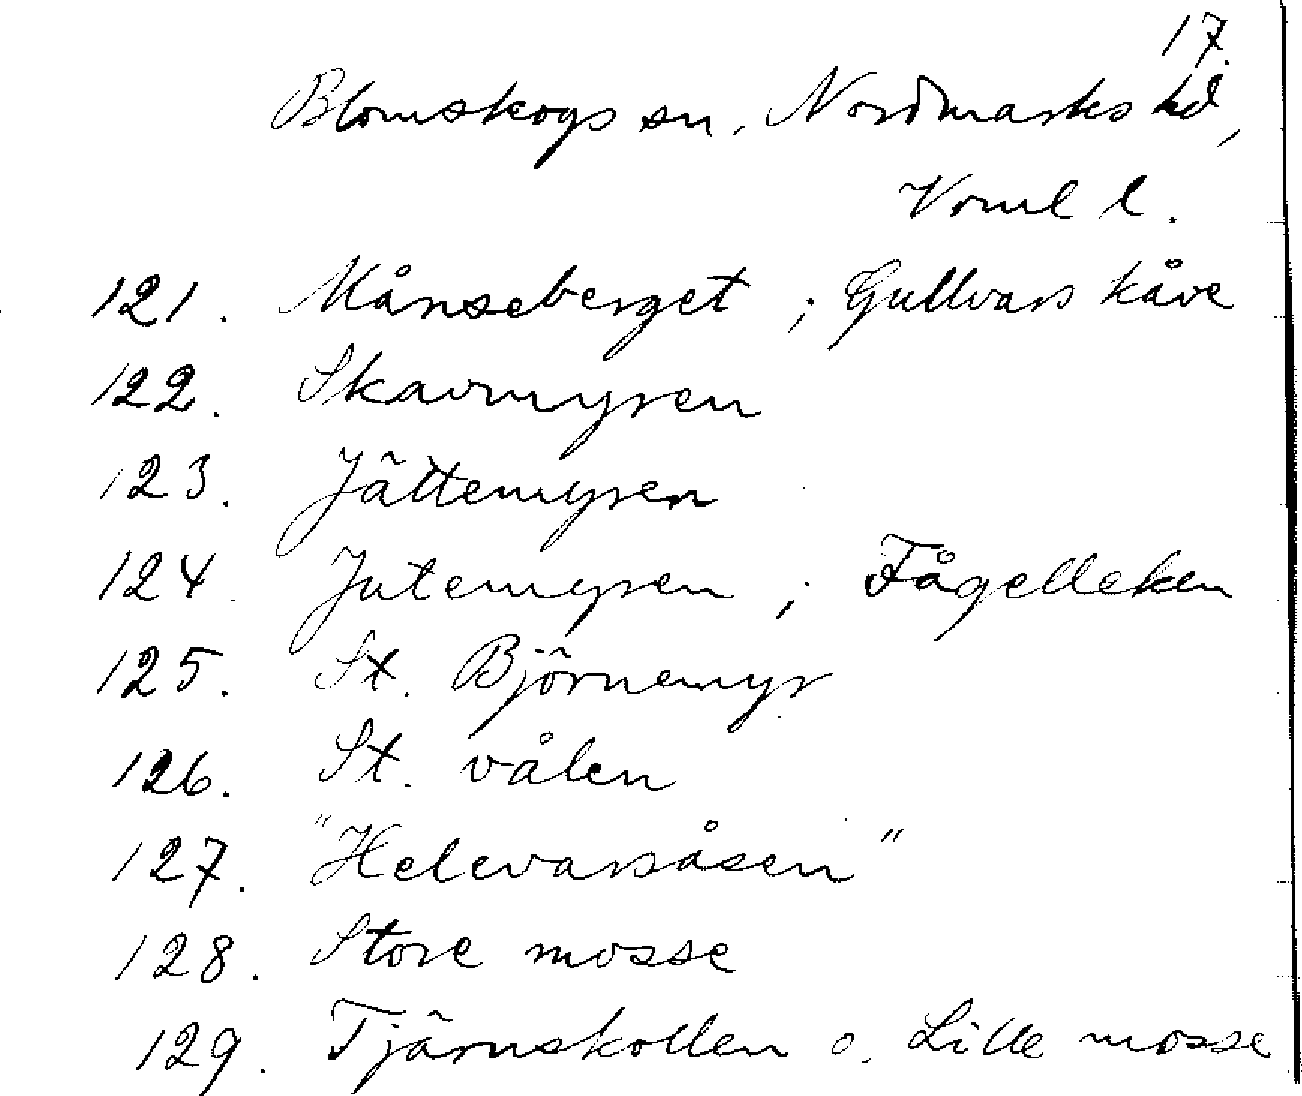 17.
Blomskogs sn. Nordmarks hd,
Vrml l.
121. Månseberget ; Gullvars kåve
122. Skavmyren
123. Jättemyren
124. Jutemyren ; Fågelleken
125. St. Björnemyr
126. St. vålen
127. "Helevarsåsen"
128. Store mosse
129. Tjärnskollen o. Lille mosse